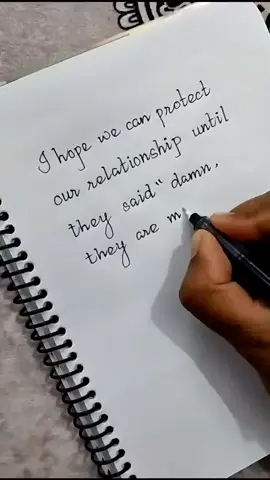 I hope we can protect
our relationship until
they said “ damn,
they are m